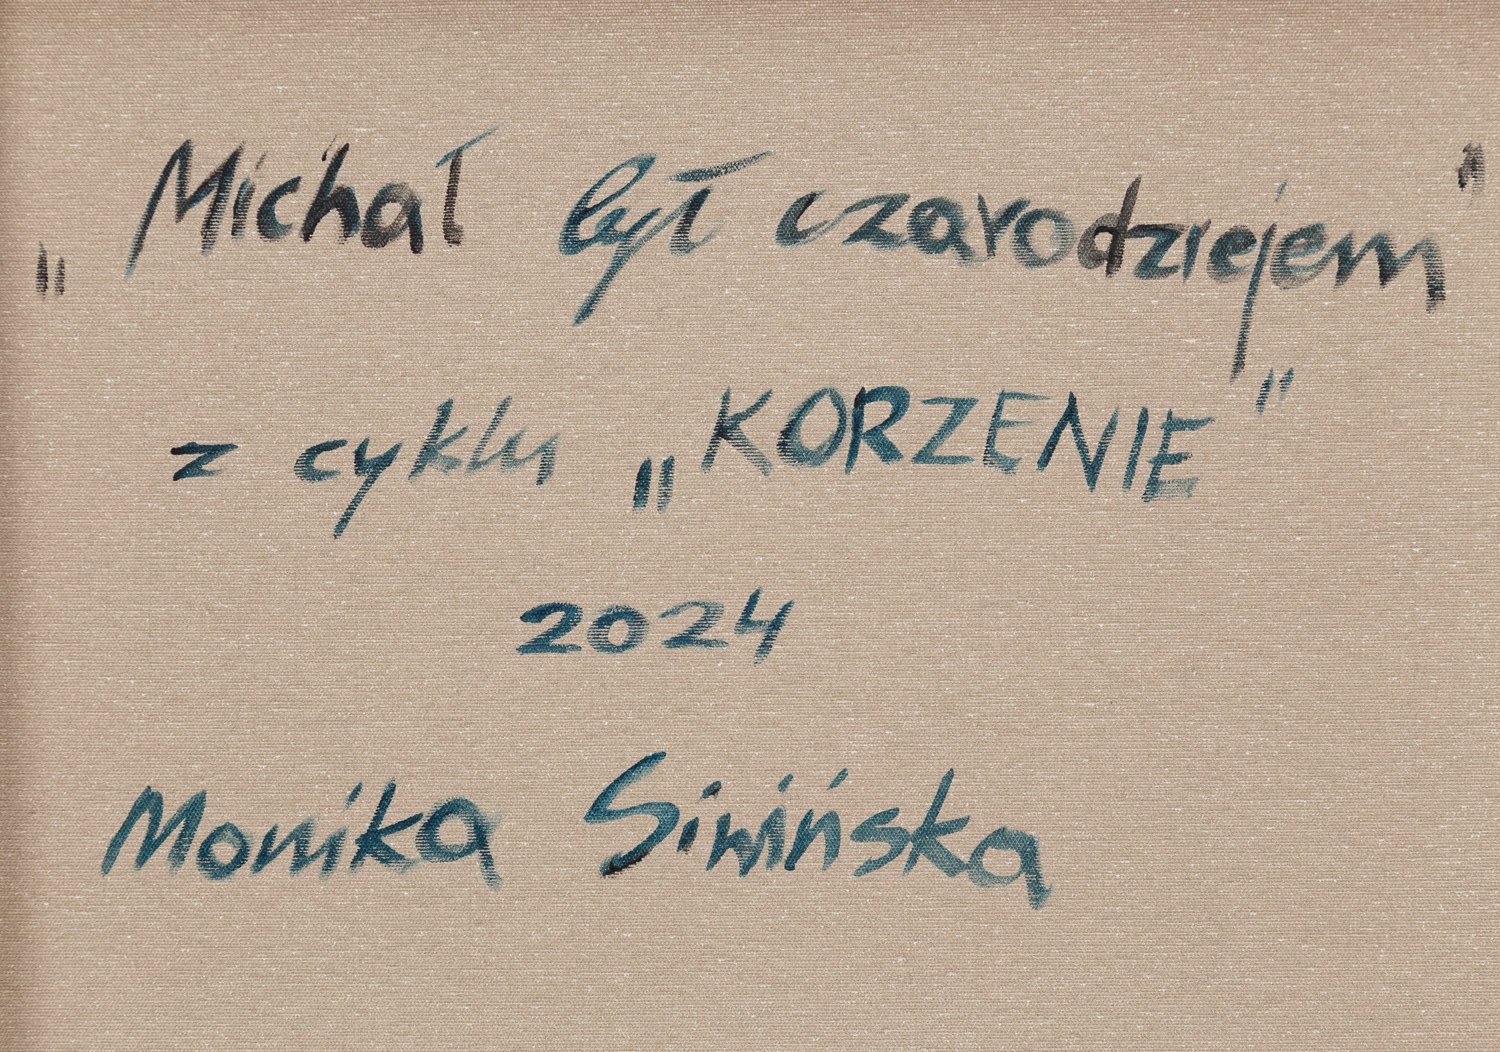 „Michał był czarodziejem"
z cyklu „KORZENIE"
2024
Monika Siwińska